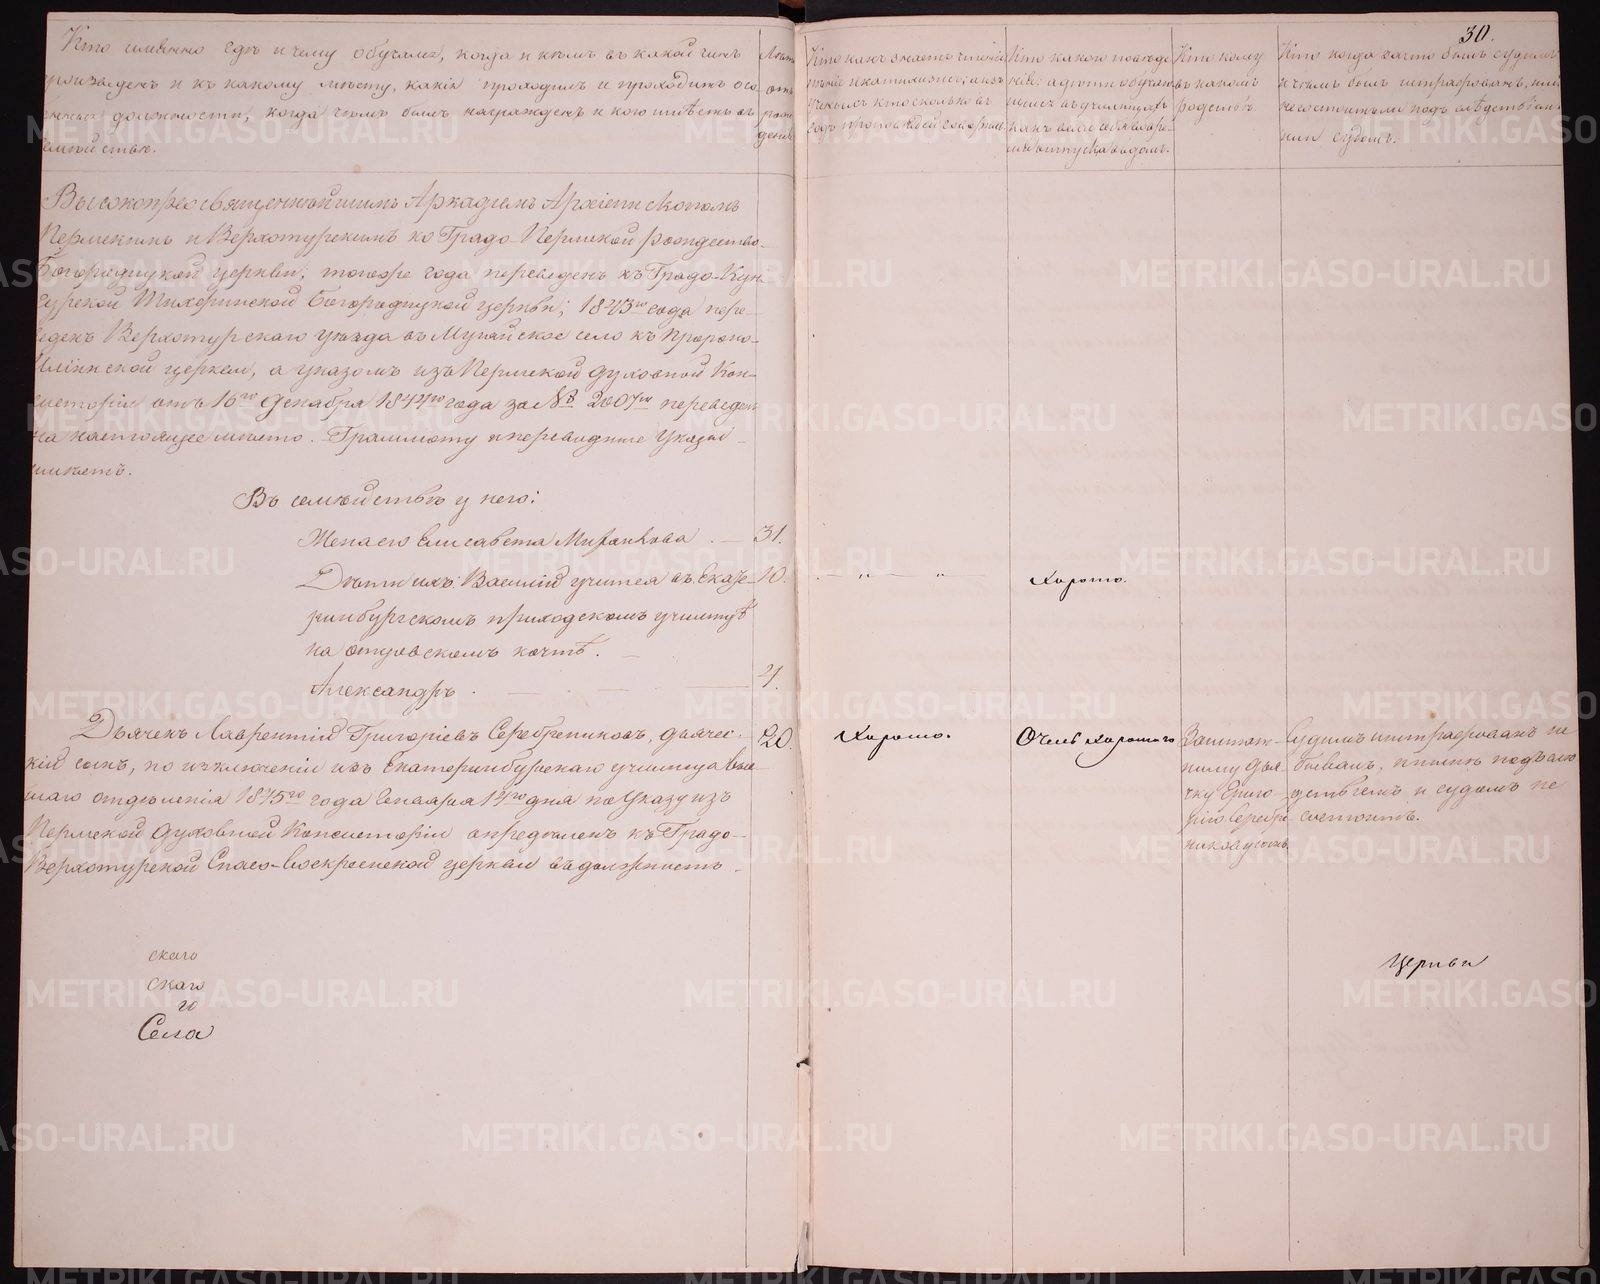 30.
Кто именно гдѣ и чему обучался, когда и кѣмъ въ какой чинъ
произведенъ и къ какому мѣсту, какія проходилъ и проходитъ осо-
должности, когда чѣмъ былъ награжденъ и кого имѣетъ въ
семействѣ.
Лѣта
отъ
рож
денія
Кто какъ знаетъ чтеніе
пѣніе и катихизисъ; а изъ
ученыхъ кто сколько въ
годъ проповѣдей
Кто какого поведе
нія; а дѣти обучаю
щіеся въ училищахъ
какъ
Кто кому
въ какомъ
родствѣ.
Кто когда за что былъ судимъ
и чѣмъ былъ штрафованъ, или
не состоитъ ли подъ слѣдствіемъ
или судомъ.
Высокопреосвященнѣйшимъ Аркадіемъ Архіепископомъ
Пермскимъ и Верхотурскимъ ко Градо-Пермской рождество-
Богородицкой церкви; тогоже года переведенъ къ Градо-Кун
гурской Тихвинской Богородицкой церкви; 1843го года пере-
веденъ Верхотурскаго уѣзда въ Мугайское село къ Пророко-
Илiинской церкви, а указомъ изъ Пермской духовной Кон-
систоріи отъ 16го Декабря 1844го года за № переведенъ
на настоящее мѣсто. Граммоту и переводные Указы
имѣетъ.
Въ семействѣ у него:
Жена его Елисавета Миронова. — 31.
Дѣти ихъ: Василій учится въ Екате- 10. — „ — „ Хорошо.
ринбургскомъ приходскомъ училищѣ
на отцовскомъ коштѣ. —
Александръ. — — — 4.
Дьячекъ Лаврентій Григоріевъ Серебрениковъ, дьячес-
кій сынъ, по изключеніи изъ Екатеринбургскаго училища выс-
шаго отдѣленія 1845го года Генваря 14го дня по Указу изъ
Пермской Духовной Консисторіи опредѣленъ къ Градо-
Верхотурской Спасо-Воскресенской церкви въ должность
20.
Хорошо.
Очень хорошаго
Заштат-
ному дья
чку Григо
рію Сереб
никову сынъ
Судимъ и штрафованъ не
бывалъ, и нынѣ подъ слѣ
дствіемъ и судомъ не
состоитъ.
скаго
скаго
го
Села
Церкви
METRIKI.GASO-URAL.RU